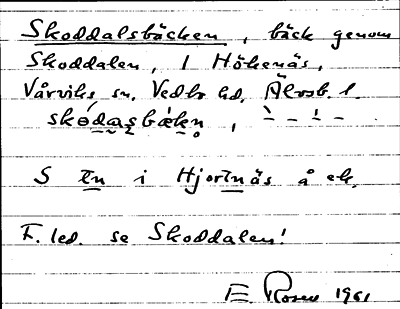 Skoddalsbäcken, bäck genom
Skoddalen, 1 Hökenäs,
Vårviks sn. Vedbo hd, Älvsb. l.
skó̀dasbäkn, ` - ' -
S tn i Hjortnäs å ek.
F. led. se Skoddalen!
E. Rosen 1961